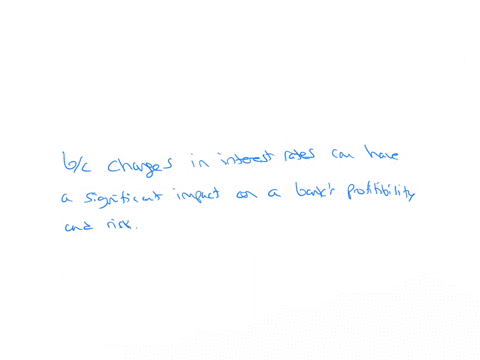 b/c changes in interest rates can have
a significant impact on a bank's profitibility
and risk.